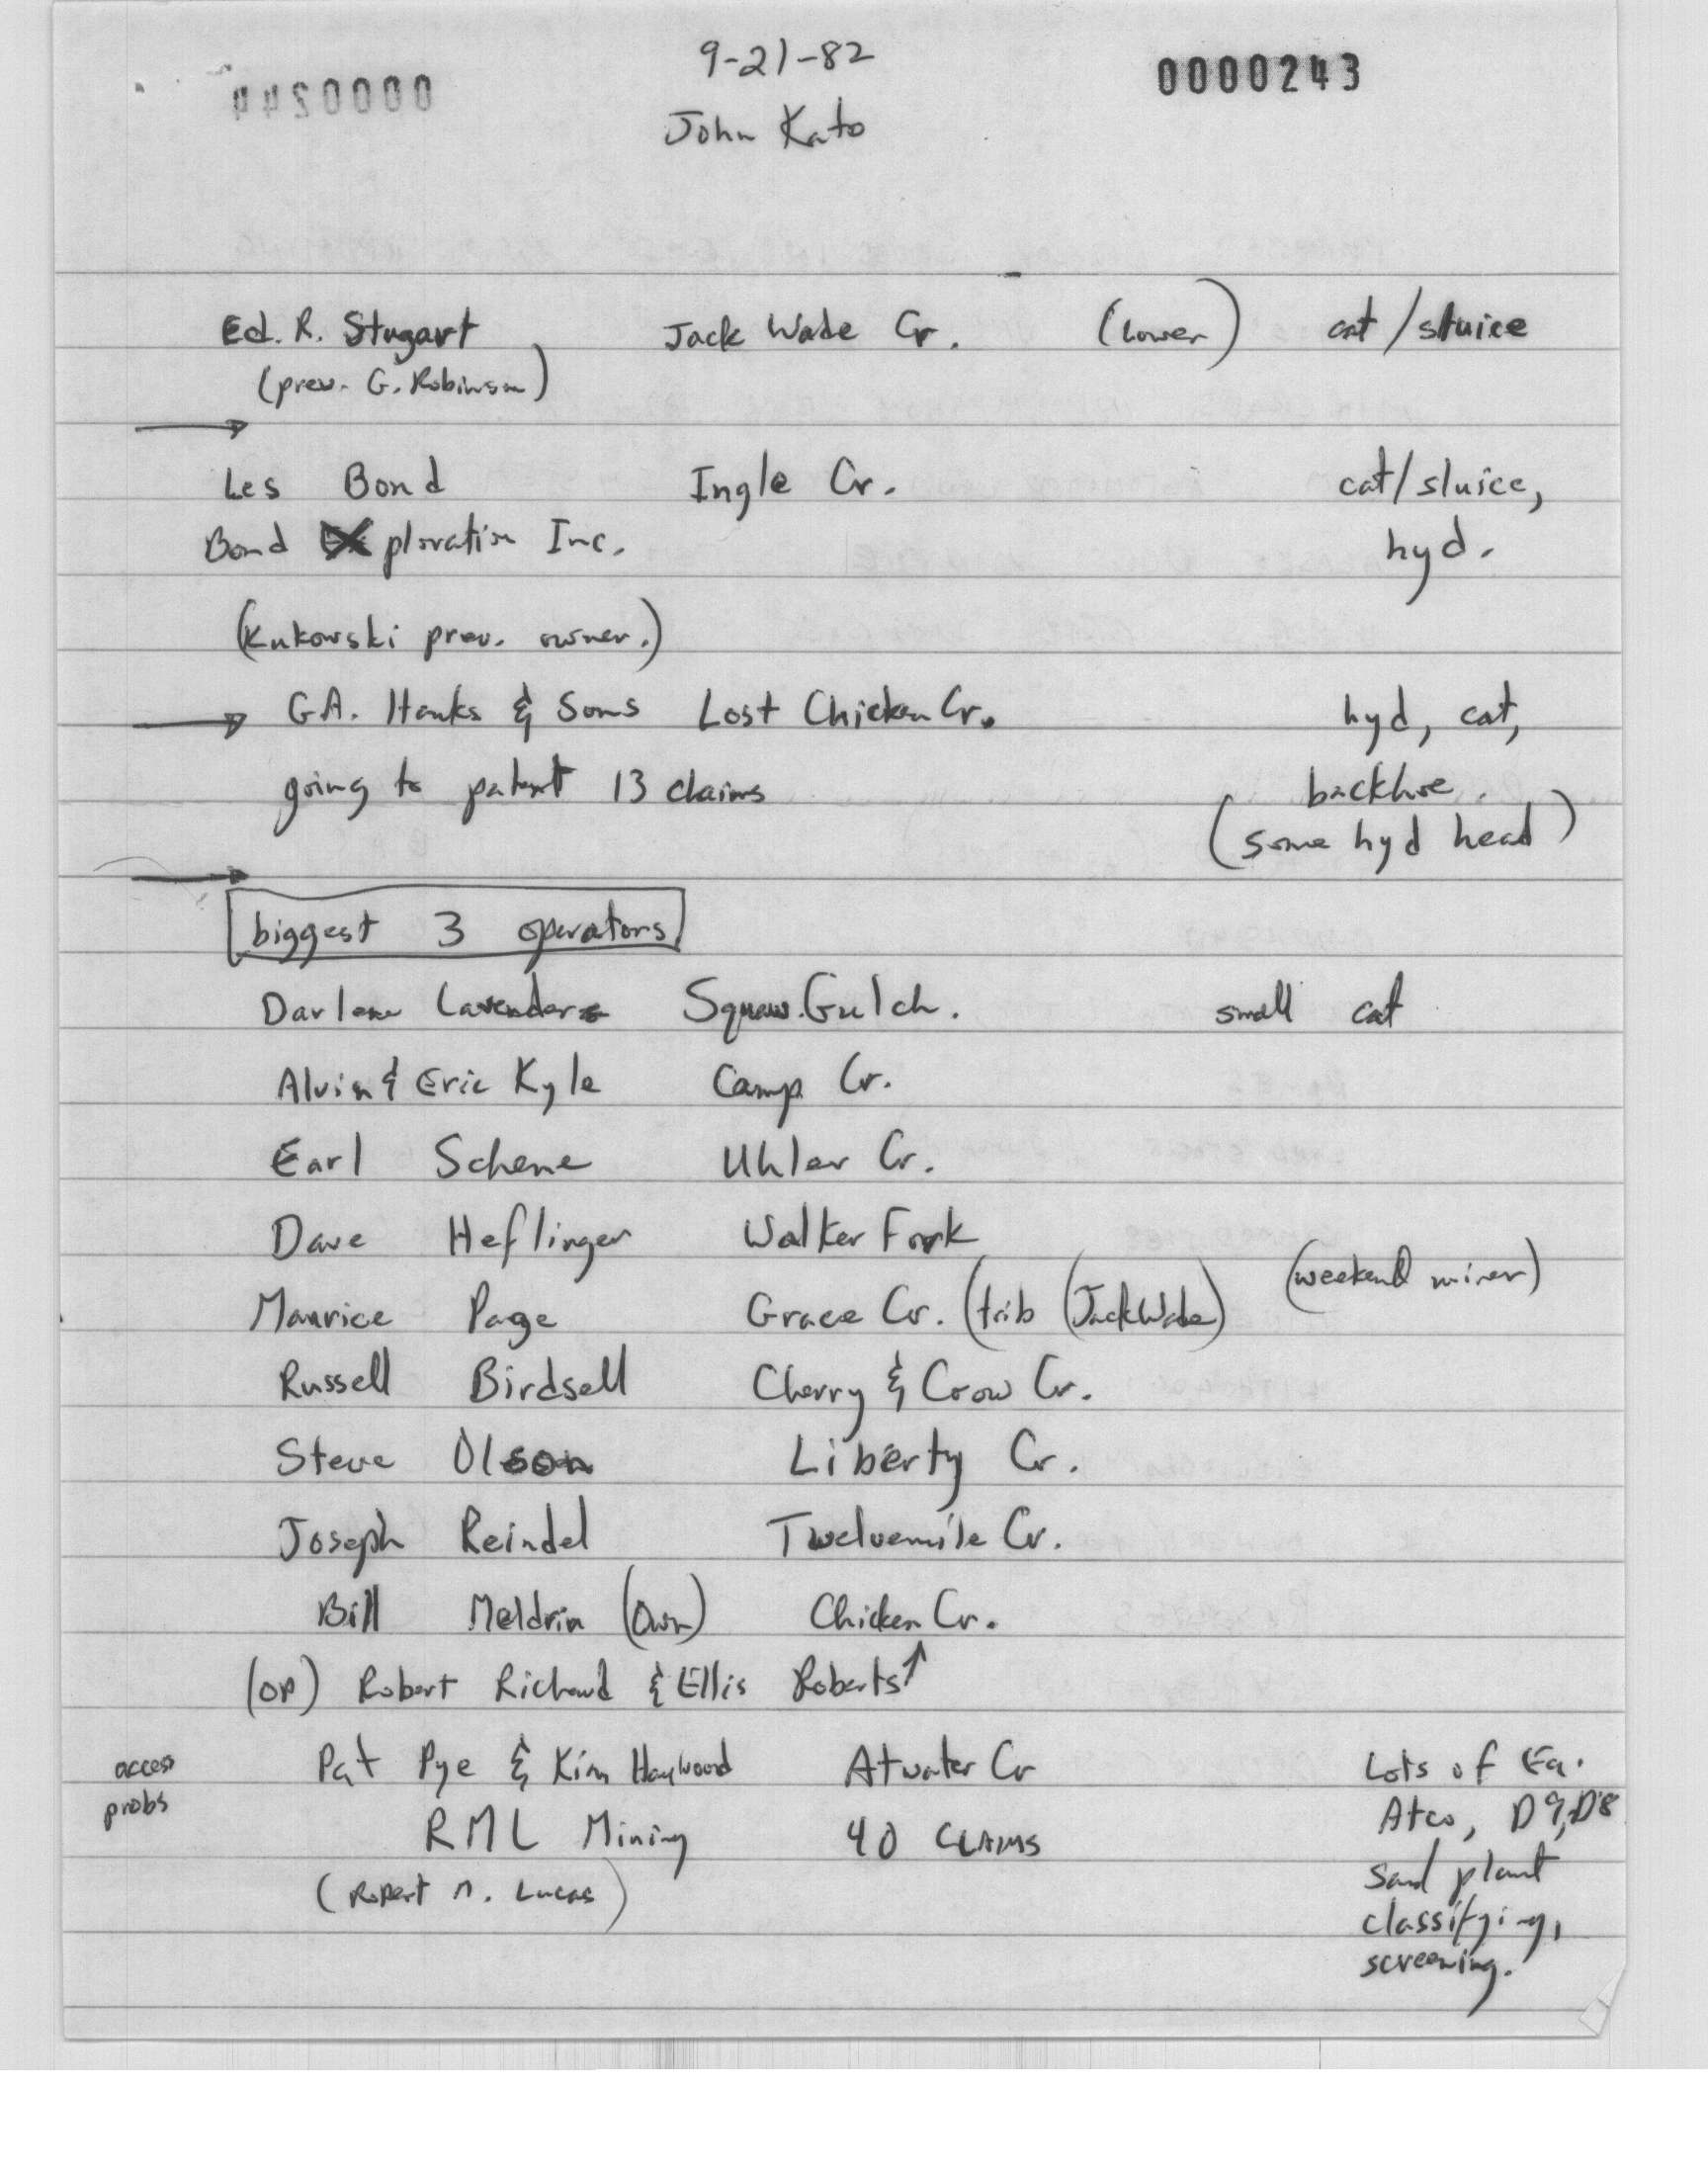 9-21-82
0000243
0000244
John Kato
Ed. R. Stugart Jack Wade Cr. (lower) cat/sluice
(prev. G. Robinson)
Les Bond Ingle Cr. cat/sluice,
Bond Exploration Inc. hyd.
(Kukowski prev. owner.)
GA. Hanks & Sons Lost Chicken Cr. hyd, cat,
going to patent 13 claims backhoe.
(some hyd head)
biggest 3 operators
Darlene Lavender Squaw Gulch. small cat
Alvin & Eric Kyle Camp Cr.
Earl Schene Uhler Cr.
Dave Heflinger Walker Fork
Maurice Page Grace Cr. (trib (Jack Wade) (weekend miner)
Russell Birdsell Cherry & Crow Cr.
Steve Olson Liberty Cr.
Joseph Reindel Twelvemile Cr.
Bill Meldrin (Own) Chicken Cr.
(OP) Robert Richard & Ellis Roberts ↑
access probs Pat Pye & Kim Haywood Atwater Cr Lots of Eq.
RML Mining 40 CLAIMS Atco, D9, D8
(Robert M. Lucas) sand plant
classifying,
screening.